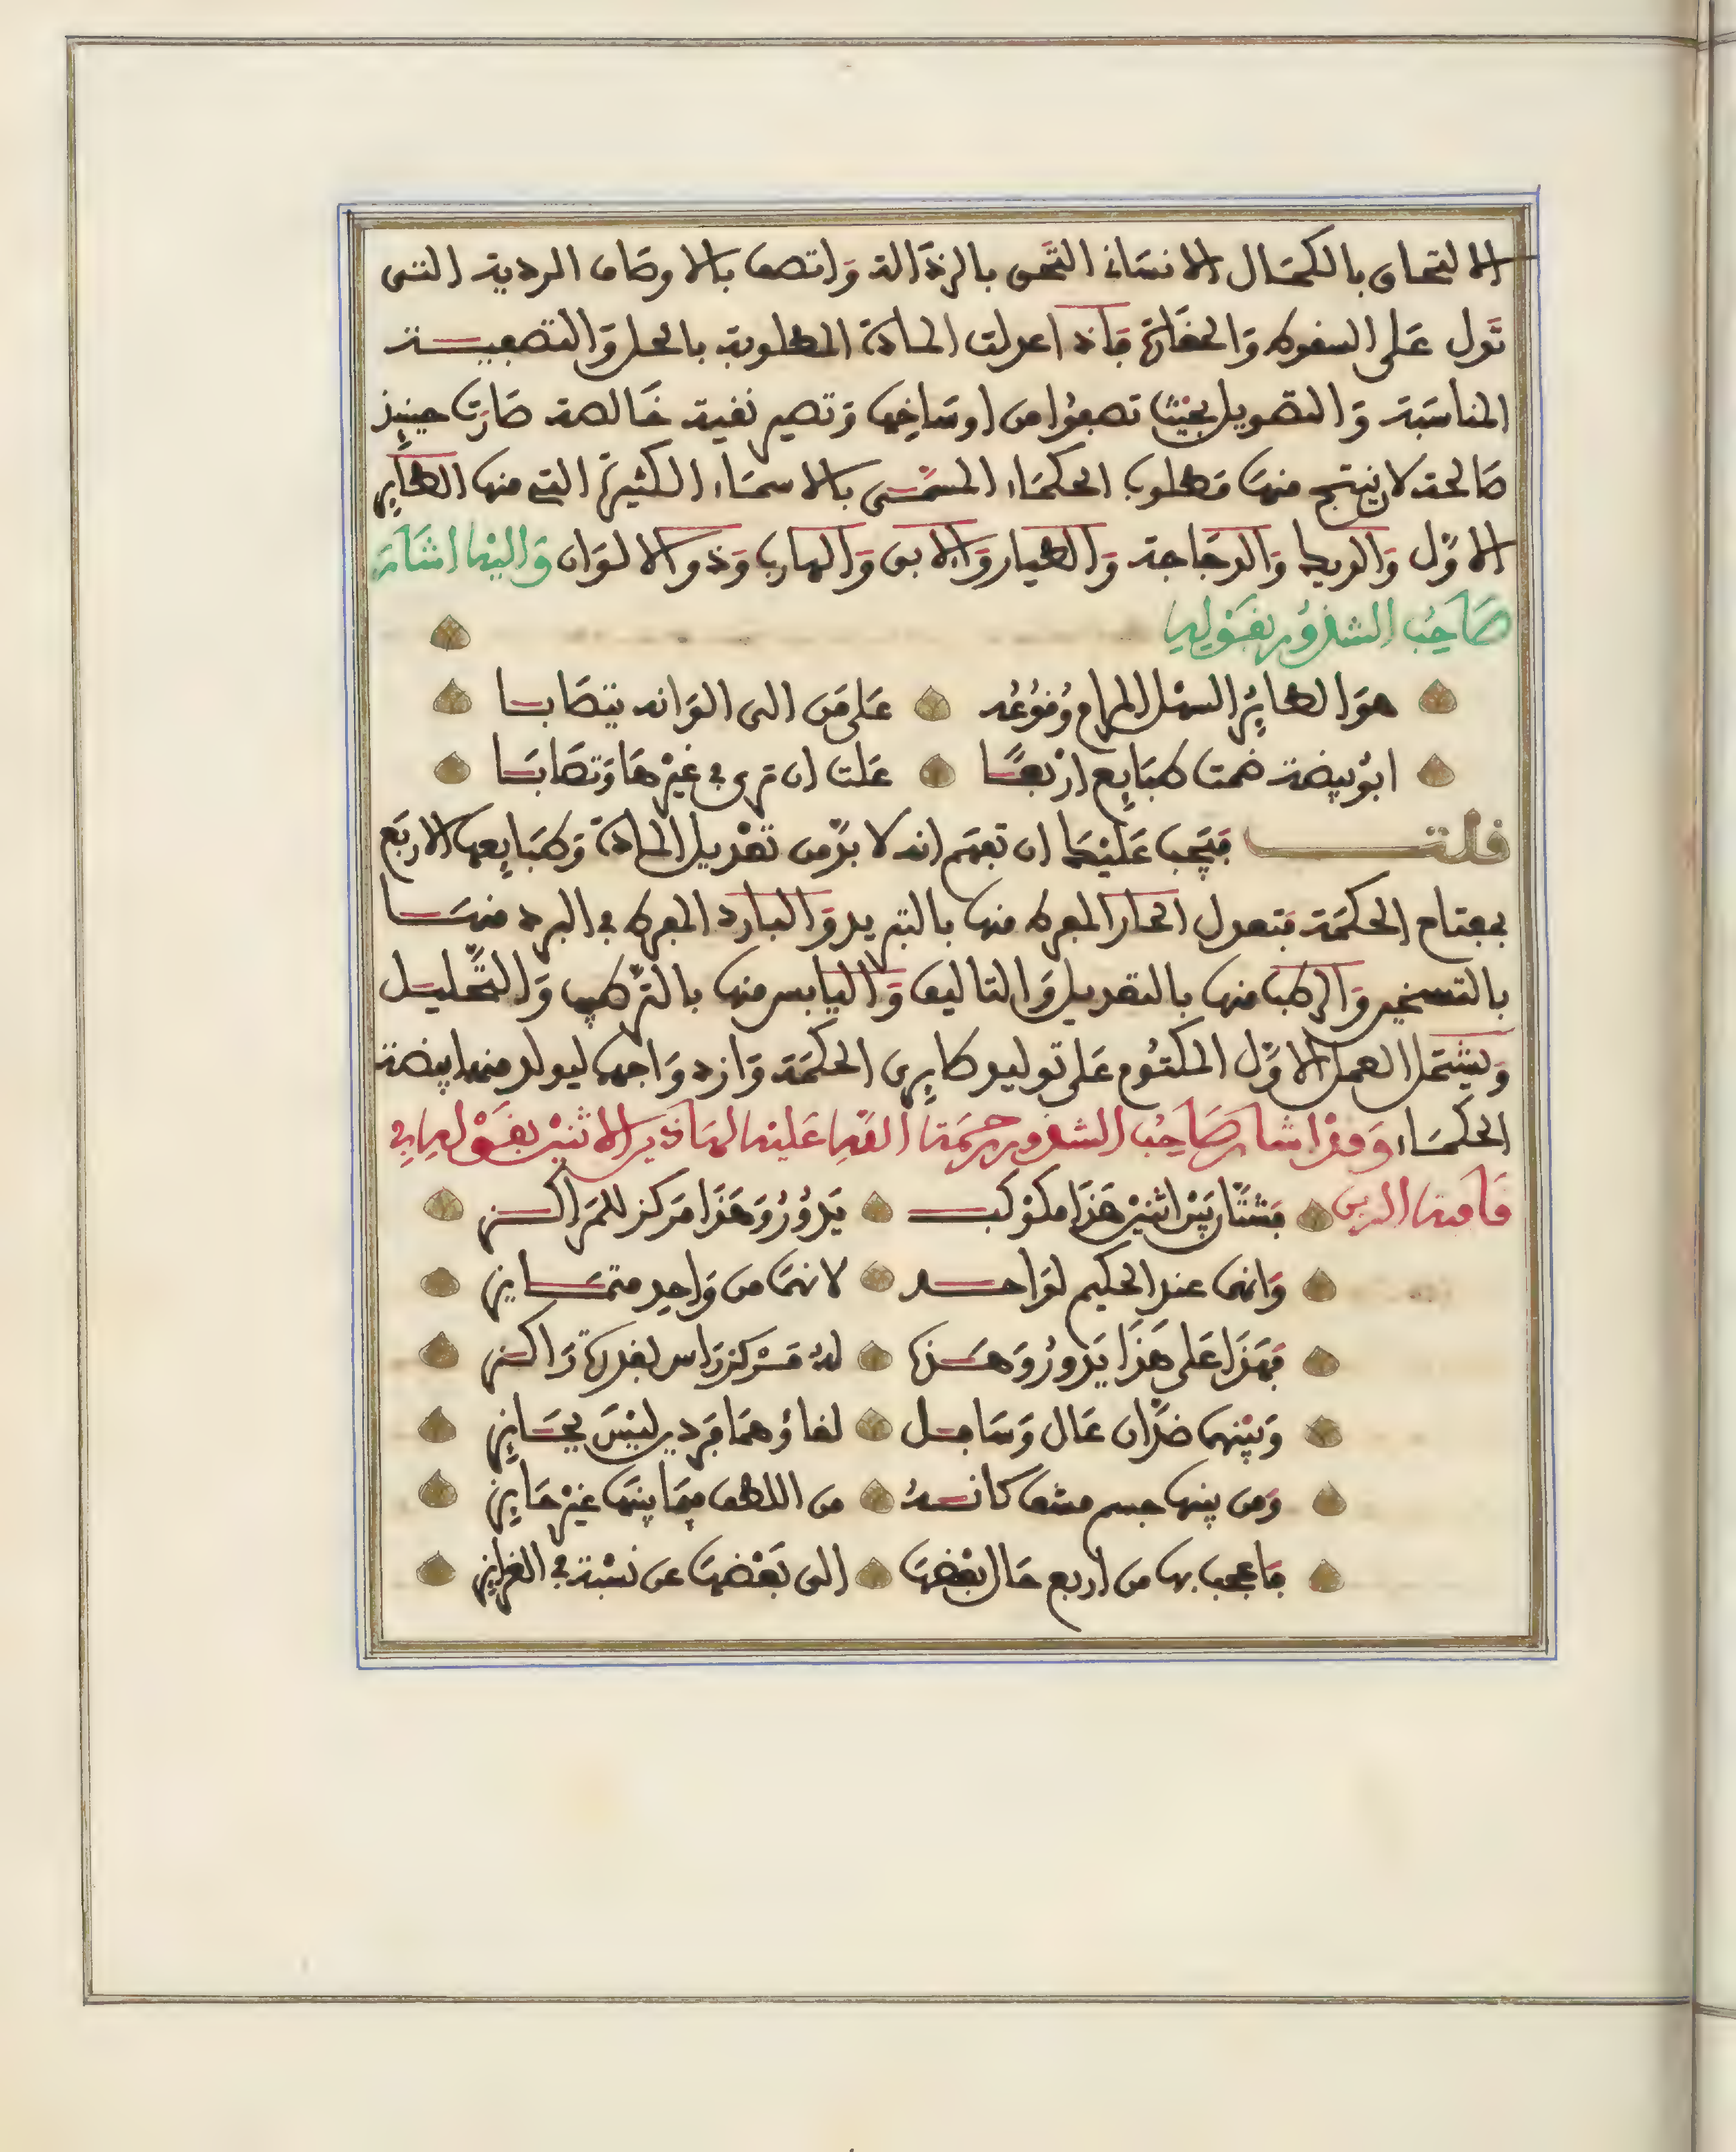 الالتحاق بالكمال الانسانى التحق بالرذالة وَاتصف بالاوصاف الردية التى
تدل عَلى السقوط وَالحقارة فاذا عدلت المادة المطلوبة بالحل وَالتصفيـة
المناسَبة وَالتقويل بحيث تصفوا من اوسَاخِها وَتصير نقية خَالصة صَارت حينيذ
صَالحة لان ينتج منهَا مَطلوب الحكمَاء المسَمَّى بالاسمَاء الكثيرة التى منها الطاير
الاوَّل وَالديك وَالدجَاجة وَالطيار وَالابق وَالهارب وَذو الالوَان وَاليْه اشَارَ
صَاحِبُ الشذوُر بقَوْلِهِ
هوَ الطايِرُ السهْل المرام وُقوُعُه عَلى مَن الى الوَانه يتصَابـا
ابوُ بيضة ضمت طبَايِع ارْبعًـا عَلت ان ترى فى غيْرهَا وَتصَابَـا
قلتـــ فيَجب عَليْك ان تفهَم انه لا بدَّ من تعْديل المادة وَطبَايِعها الاربَع
بمفتاح الحكمَة فتعدل الحار المفرط منها بالتبريد وَالبارد المفرط فى البرد منهَـا
بالتسخين وَالرطب منها بالتعديل وَالتاليف وَاليابس منها بالترْكيب وَالتَّحليـل
وَيشتمل العمل الاوَّل المكتوُم عَلى توليد طايِرى الحكمَة وَازدوَاجها ليولد منهما بيضة
الحكمَـاء وَقدْ اشار صَاحِبُ الشذور رحِمَة اللهِ عَليْه لهاذين الاثنيْن بقَوْلهِ فى
قافية الزين فشتَّان بيْن اثنيْن هَذا مكوْكبـ يَدوُرُ وَهَذا مَركز للمَرَاكـز
وَانهما عند الحكيم لوَاحـد لانهمَا من وَاحِدٍ متمَـايز
فهَذا عَلى هَذَا يَدورُ وَهَـذا لهُ مَـركز رَاس بقدرَة رَاكـز
وَبيْنهما ضدَّان عَال وَسَافـل لقاؤهمَا فردين ليْسَ بجَـايز
وَمن بينها جسم مشف كانـهُ من اللطف فيما بينهَا غيْر حَايِز
فاعجب بها من اربع حَال بعْضهَا الى بَعْضهَا عن نسْبة فى الغرايز